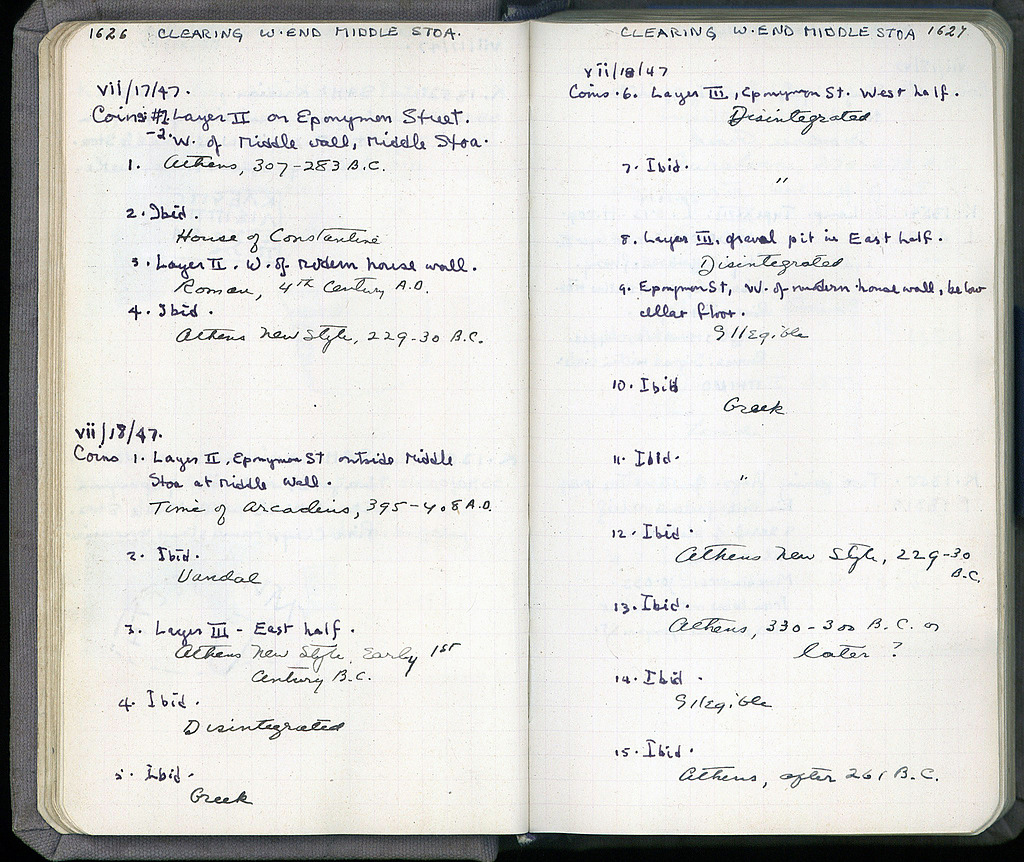 1626 CLEARING W. END MIDDLE STOA.
vii/17/47.
Coins #1 Layer II on Eponymon Street.
-2. W. of Middle wall, Middle Stoa.
1. Athens, 307-283 B.C.
2. Ibid.
House of Constantine
3. Layer II. W. of modern house wall.
Roman, 4th Century A.D.
4. Ibid.
Athens New Style, 229-30 B.C.
vii/18/47.
Coins 1. Layer II, Eponymon St outside Middle
Stoa at Middle Wall.
Time of Arcadius, 395-408 A.D.
2. Ibid.
Vandal
3. Layer III - East half.
Athens New Style, Early 1st
Century B.C.
4. Ibid.
Disintegrated
5. Ibid.
Greek
CLEARING W. END MIDDLE STOA 1627
vii/18/47
Coins. 6. Layer III, Eponymon St. West half.
Disintegrated
7. Ibid.
"
8. Layer III. gravel pit in East half.
Disintegrated
9. Eponymon St, W. of modern house wall, below
cellar floor.
Illegible
10. Ibid
Greek
11. Ibid.
"
12. Ibid.
Athens New Style, 229-30
B.C.
13. Ibid.
Athens, 330-300 B.C. or
later ?
14. Ibid.
Illegible
15. Ibid.
Athens, after 261 B.C.